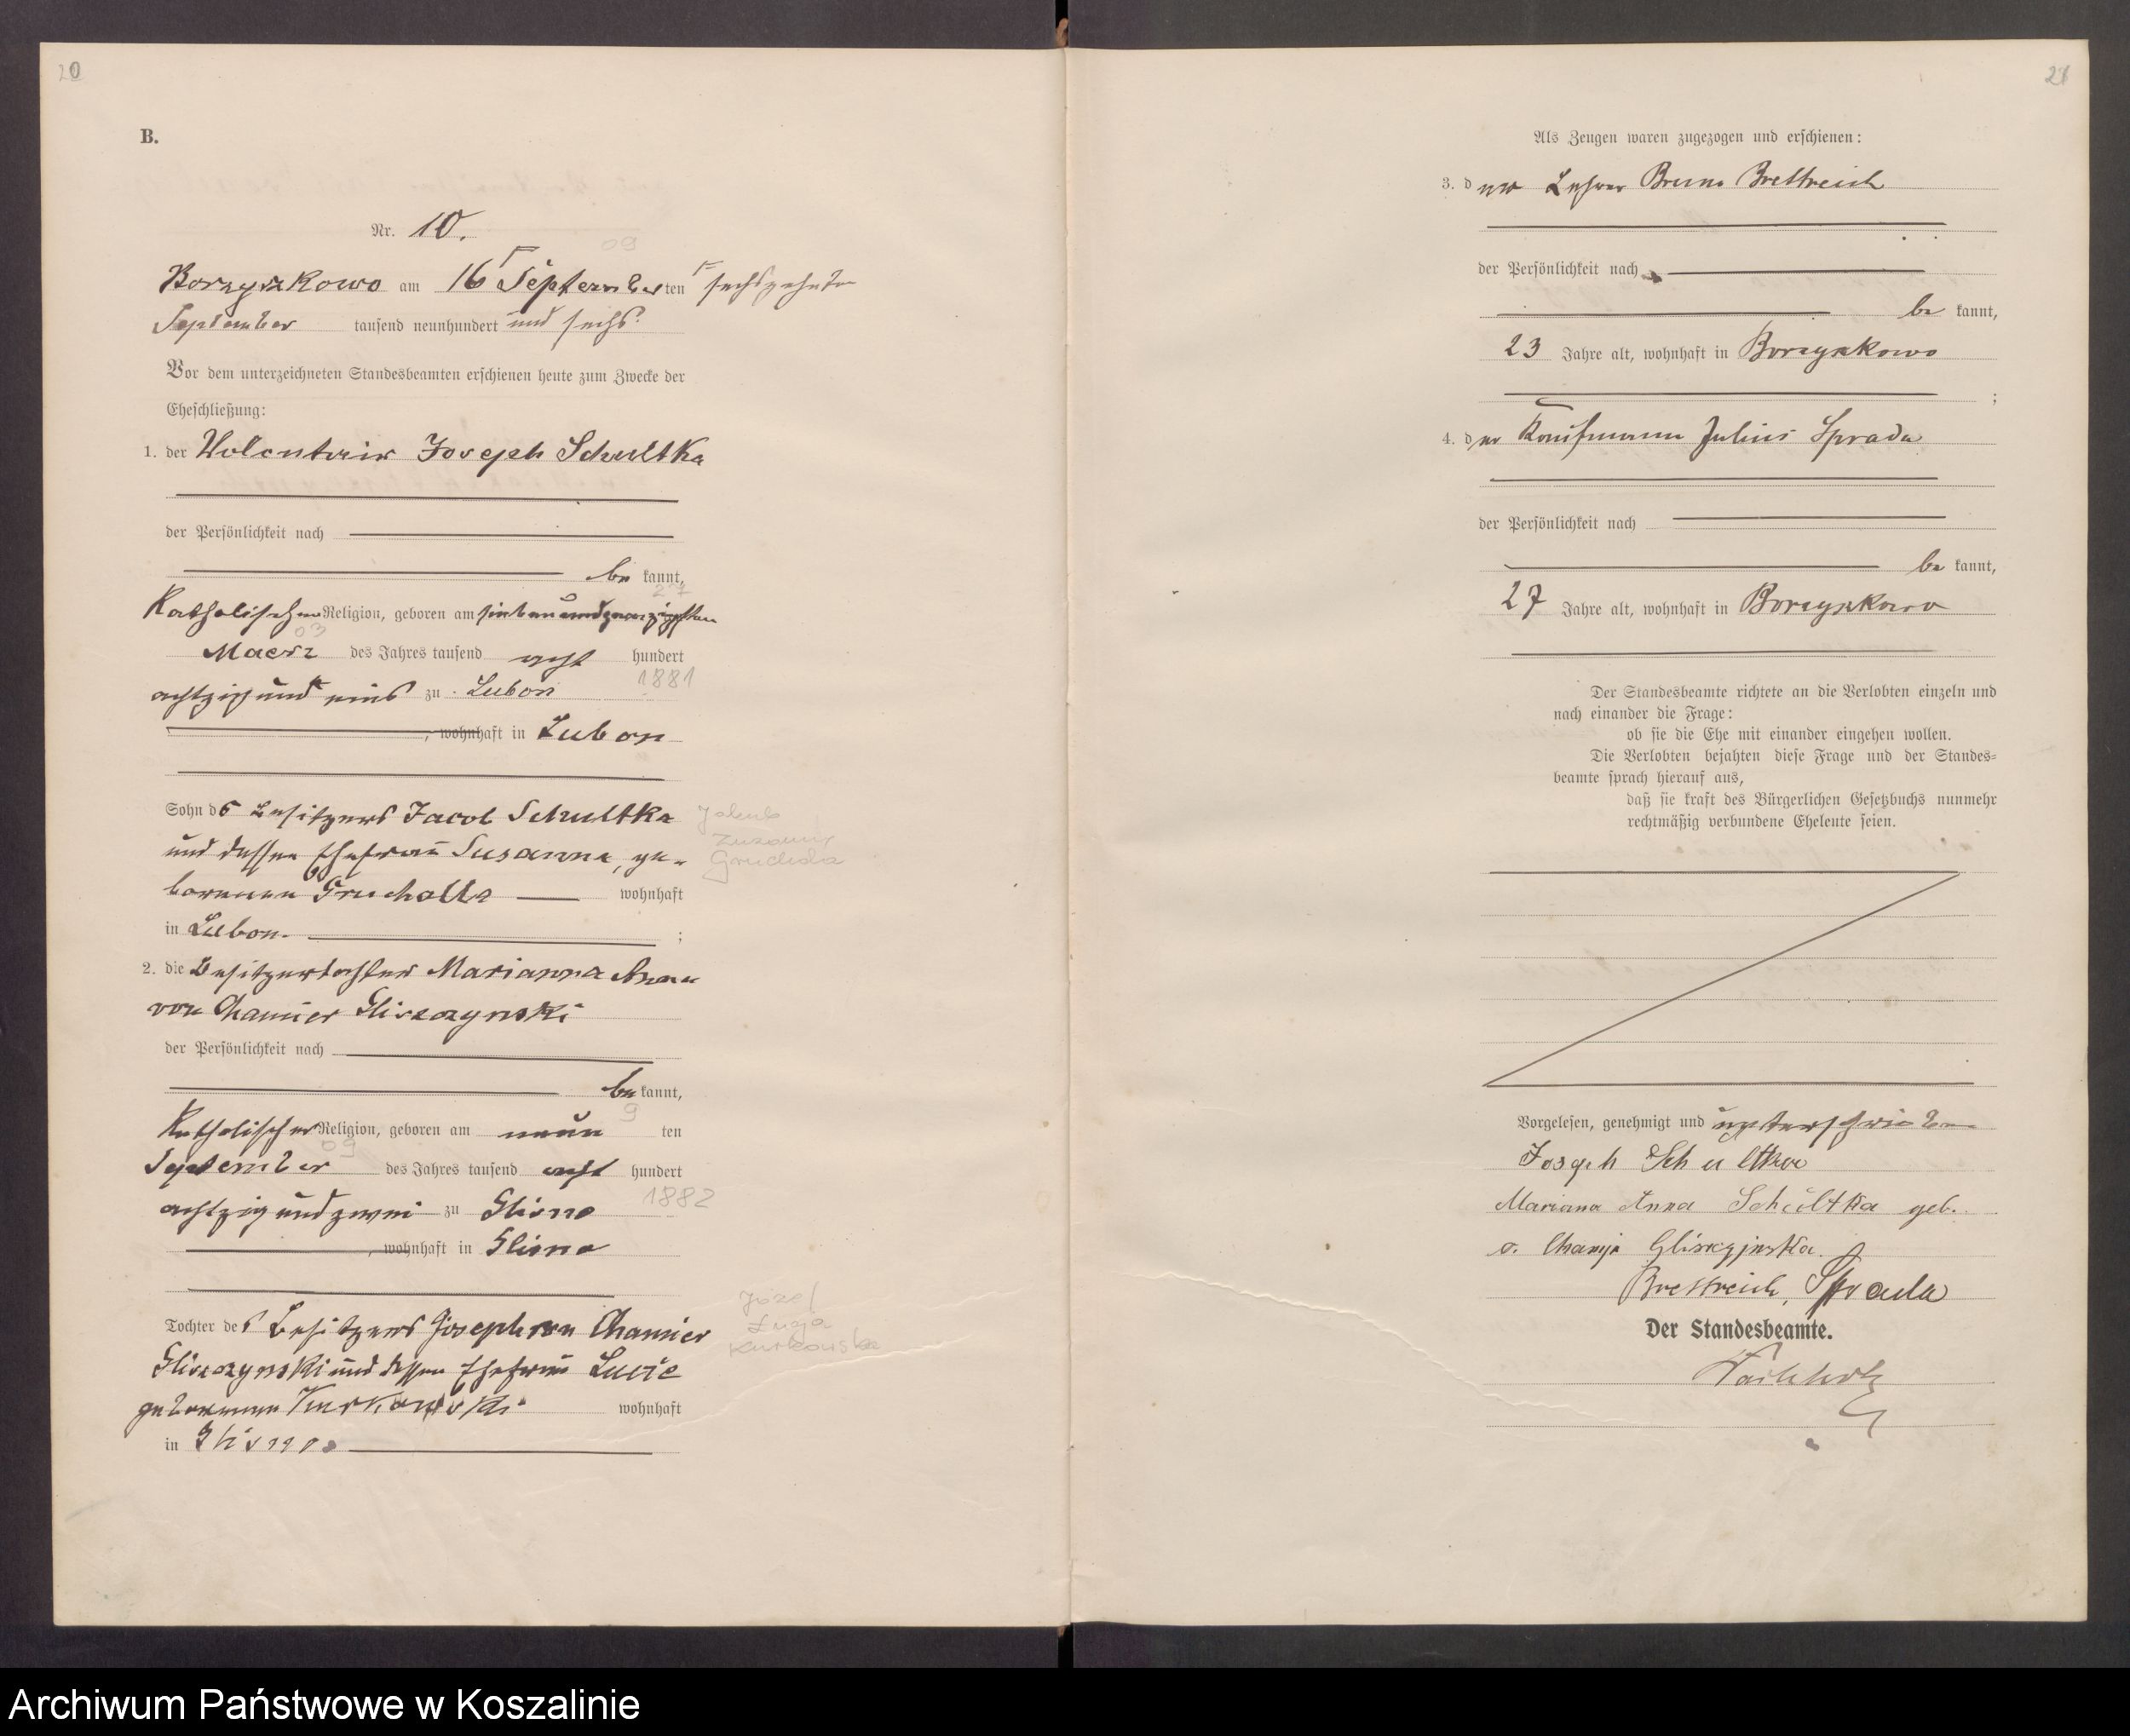 20
B.
Nr. 10.
09
Borzyszkowo am 16 September ten sechszehnten
September tausend neunhundert und sechs.
Vor dem unterzeichneten Standesbeamten erschienen heute zum Zwecke der
Eheschließung:
1. der Volontair Joseph Schultka
der Persönlichkeit nach
be kannt,
27
Katholischer Religion, geboren am siebenundzwanzigsten
03
Maerz des Jahres tausend acht hundert
1881
achtzig und eins zu Lubon
, wohnhaft in Lubon
Sohn des Besitzers Jacob Schultka
Jakub
und dessen Ehefrau Susanna, ge-
Zuzanna
borenen Gruchalla wohnhaft
in Lubon. ;
2. die Besitzertochter Marianna Anna
von Chamier Gliszczynski
der Persönlichkeit nach
be kannt,
9
Katholischer Religion, geboren am neun ten
09
September des Jahres tausend acht hundert
1882
achtzig und zwei zu Glisno
, wohnhaft in Glisno
Józef
Tochter des Besitzers Joseph von Chamier
Łucja
Gliszczynski und dessen Ehefrau Lucie
Kurkowska
geborenen Kurkowski wohnhaft
in Glisno
21
Als Zeugen waren zugezogen und erschienen:
3. der Lehrer Bruno Brettreich
der Persönlichkeit nach
be kannt,
23 Jahre alt, wohnhaft in Borzyszkowo
;
4. der Kaufmann Julius Sprada
der Persönlichkeit nach
be kannt,
27 Jahre alt, wohnhaft in Borzyszkowo
Der Standesbeamte richtete an die Verlobten einzeln und
nach einander die Frage:
ob sie die Ehe mit einander eingehen wollen.
Die Verlobten bejahten diese Frage und der Standes=
beamte sprach hierauf aus,
daß sie kraft des Bürgerlichen Gesetzbuchs nunmehr
rechtmäßig verbundene Eheleute seien.
Vorgelesen, genehmigt und unterschrieben
Joseph Schultka
Mariana Anna Schultka geb.
v. Gliszczynska.
Brettreich, Sprada
Der Standesbeamte.
Archiwum Państwowe w Koszalinie